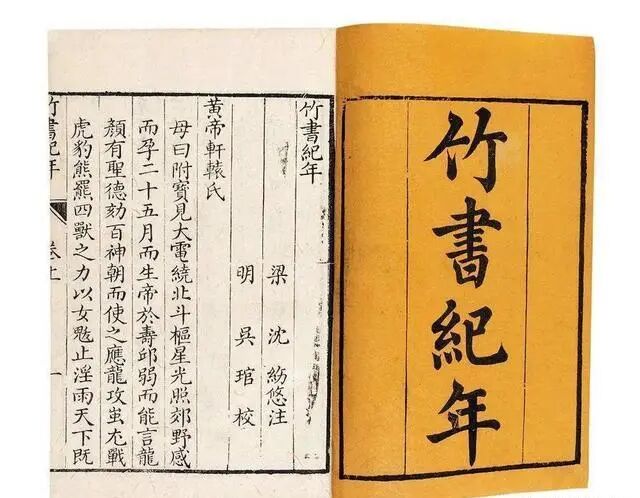 竹書紀年
竹書紀年
梁 沈 約 附注
明 吳 琯 校
黃帝軒轅氏
母曰附寶見大電繞北斗樞星光照郊野感
而孕二十五月而生帝於壽邱弱而能言龍
顏有聖德劾百神朝而使之應龍攻蚩尤戰
虎豹熊羆四獸之力以女魃止淫雨天下既
竹書紀年 卷上 一